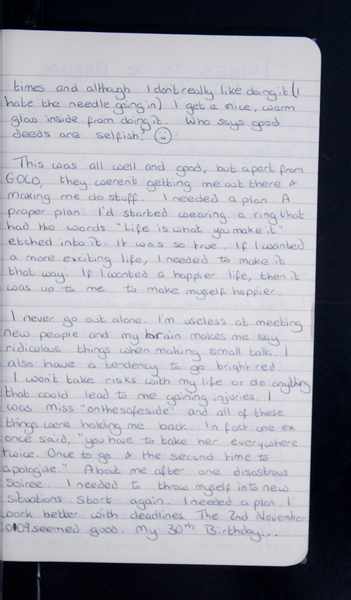 times and although I dont really like doing it (I
hate the needle going in) I get a nice, warm
glow inside from doing it. Who says good
deeds are selfish?
This was all well and good, but apart from
GOLO, they weren't getting me out there &
making me do stuff. I needed a plan. A
proper plan. I'd started wearing a ring that
had the words "Life is what you make it"
etched into it. It was so true. If I wanted
a more exciting life, I needed to make it
that way. If I wanted a happier life, then it
was up to me to make myself happier.
I never go out alone. I'm useless at meeting
new people and my brain makes me say
ridiculous things when making small talk. I
also have a tendency to go bright red.
I won't take risks with my life or do anything
that could lead to me gaining injuries. I
was miss "onthesafeside" and all of these
things were holding me back. In fact one ex
once said, "you have to take her everywhere
twice. Once to go & the second time to
apologise." About me after one disastrous
soiree. I needed to throw myself into new
situations. Start again. I needed a plan. I
work better with deadlines. The 2nd November
seemed good. My 30th Birthday...